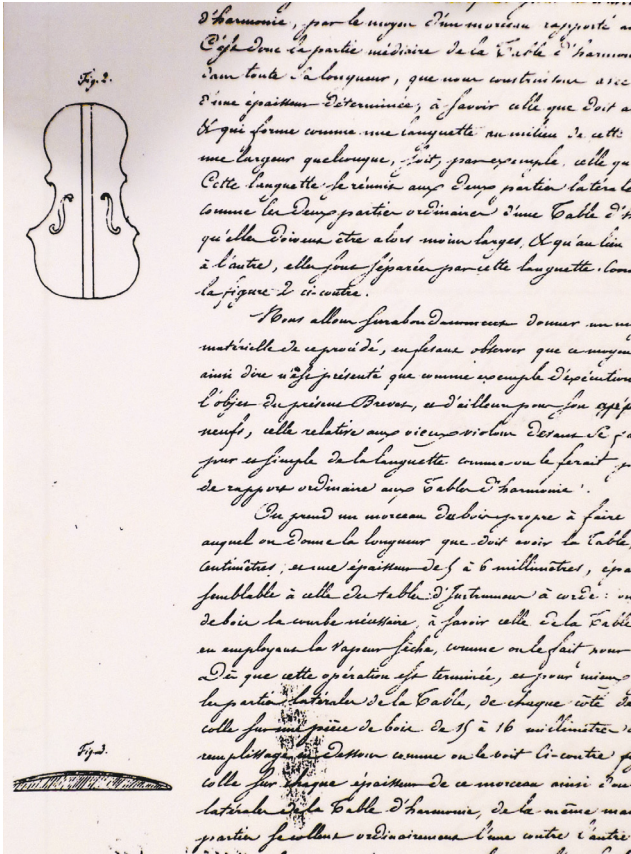 d'harmonie, par le moyen d'un morceau rapporté au
C'est donc la partie médiaire de la Table d'harmon
dans toute sa longueur, que nous construisons avec
Fig. 2.
d'une épaisseur déterminée, à savoir celle que doit a
& qui forme comme une languette au milieu de cette
une largeur quelconque, soit, par exemple, celle qu
Cette languette se réunit aux deux parties latérale
comme les deux parties ordinaires d'une Table d'h
qu'elles doivent être alors moins larges, & qu'au lieu
à l'autre, elles sont séparées par cette languette. Com
la figure 2 ci-contre.
Nous allons surabondamment donner un m
matérielle de ce procédé, en fesant observer que ce moyen
ainsi dire n'est présenté que comme exemple d'exécution
l'objet du présent Brevet, et d'ailleurs pour son
neufs, celle relative aux vieux violons devant se
pur et simple de la languette comme on le ferait p
de rapport ordinaire aux Tables d'harmonie.
On prend un morceau de bois propre à faire
auquel on donne la longueur que doit avoir la Table,
centimètres, et une épaisseur de 5 à 6 millimètres, épa
semblable à celle des tables d'Instrumens à corde : on
de bois la courbe nécessaire, à savoir celle de la Table
en employant la vapeur sèche, comme on le fait pour
Dès que cette opération est terminée, et pour mieux
les parties latérales de la Table, de chaque côté de
colle sur une pièce de bois de 15 à 16 millimètres
Fig. 3.
remplissage en dessous comme on le voit ci-contre f
colle sur chaque épaisseur de ce morceau ainsi dou
latérales de la Table d'harmonie, de la même man
parties se collent ordinairement l'une contre l'autre